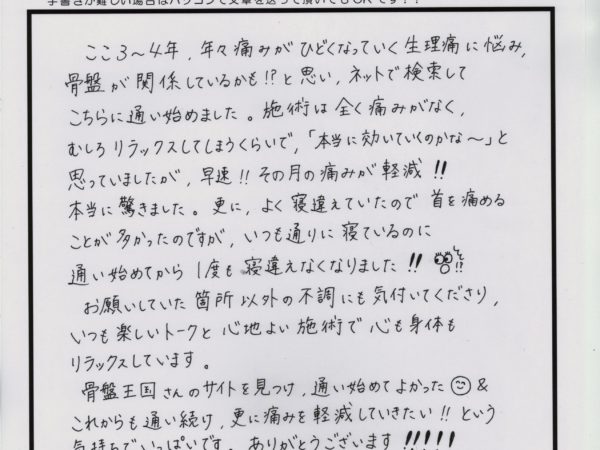 手書きが難しい場合はパソコンで文章を送って頂いてもOKです！！
ここ3～4年、年々痛みがひどくなっていく生理痛に悩み、
骨盤が関係しているかも!?と思い、ネットで検索して
こちらに通い始めました。施術は全く痛みがなく、
むしろリラックスしてしまうくらいで、「本当に効いていくのかな～」と
思っていましたが、早速!!その月の痛みが軽減!!
本当に驚きました。更に、よく寝違えていたので首を痛める
ことが多かったのですが、いつも通りに寝ているのに
通い始めてから1度も寝違えなくなりました!!
お願いしていた箇所以外の不調にも気付いてくださり、
いつも楽しいトークと心地よい施術で心も身体も
リラックスしています。
骨盤王国さんのサイトを見つけ、通い始めてよかった☺&
これからも通い続け、更に痛みを軽減していきたい!!という
気持ちでいっぱいです。ありがとうございます!!!!!